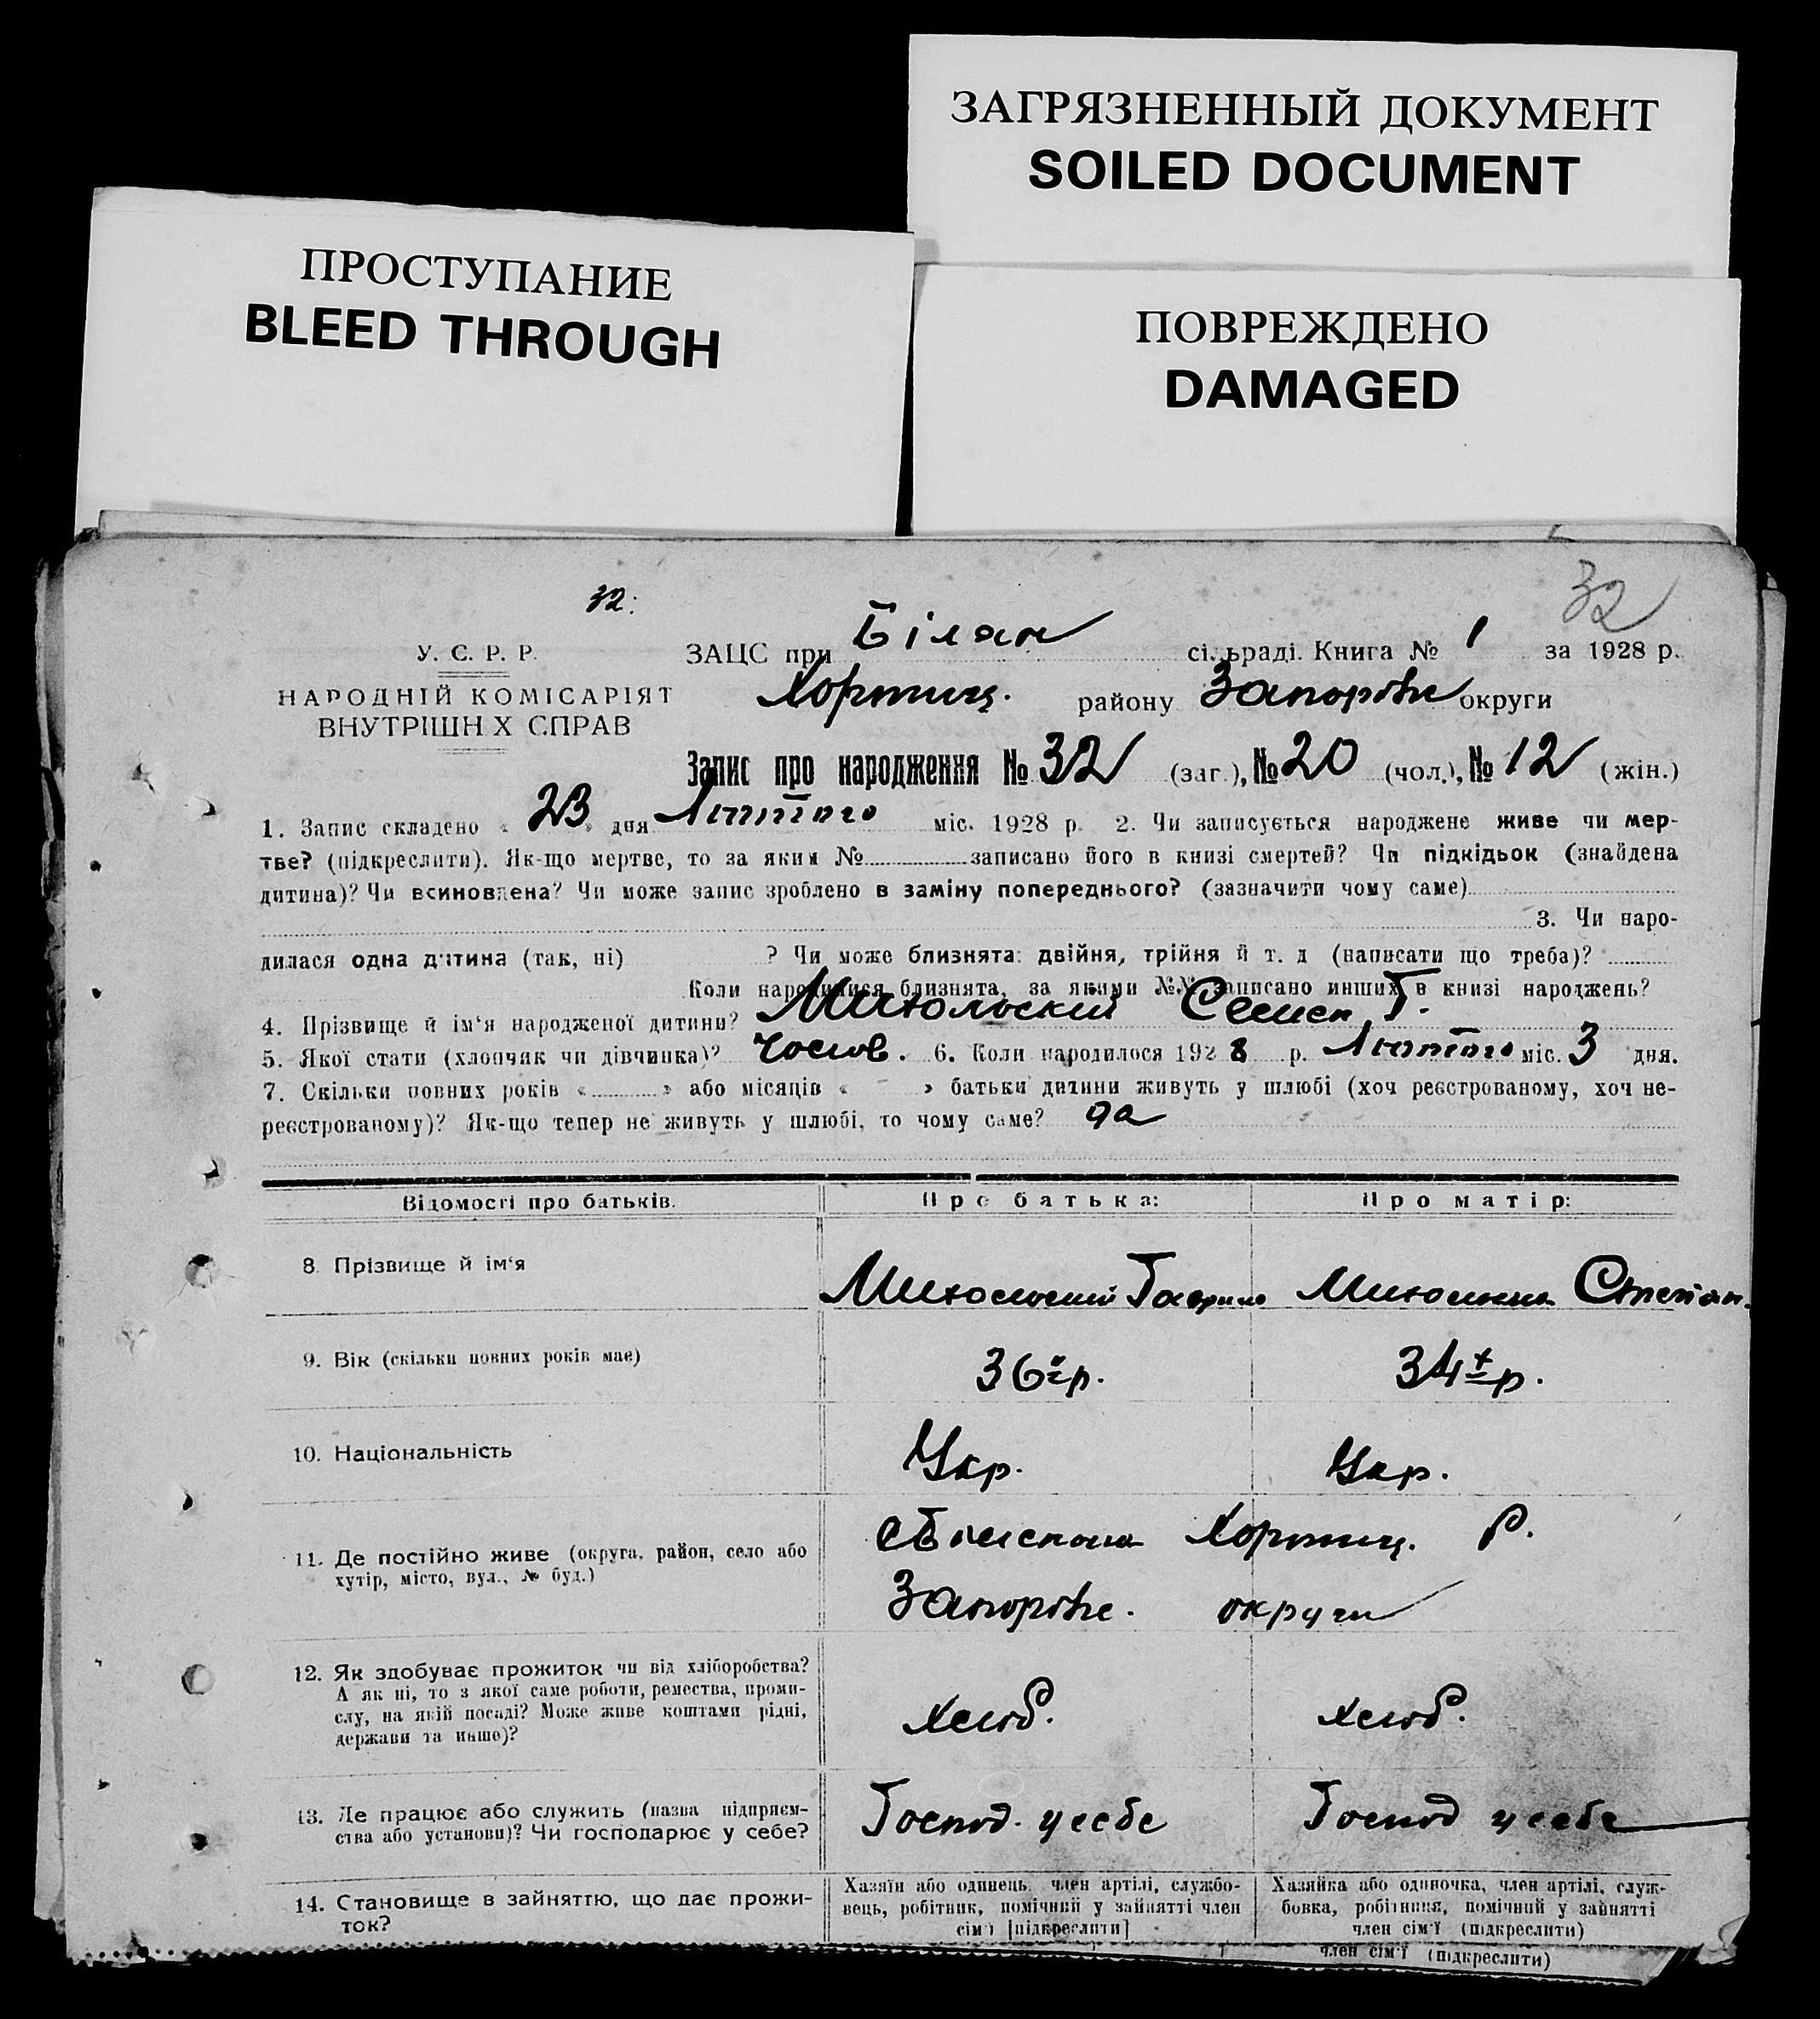 ЗАГРЯЗНЕННЫЙ ДОКУМЕНТ
SOILED DOCUMENT
ПРОСТУПАНИЕ
BLEED THROUGH
ПОВРЕЖДЕНО
DAMAGED
32
32:
У. С. Р. Р.
НАРОДНІЙ КОМІСАРІЯТ
ВНУТРІШН Х СПРАВ
ЗАЦС при Білен сі. ьраді. Книга № 1 за 1928 р.
Хортиц. району Запорізьк округи
Запис про народження № 32 (заг.), № 20 (чол.), № 12 (жін.)
1. Запис складено « 23 » дня Лютого міс. 1928 р. 2. Чи записується народжене живе чи мер-
тве? (підкреслити). Як-що мертве, то за яким № записано його в книзі смертей? Чи підкідьок (знайдена
дитина)? Чи всиновлена? Чи може запис зроблено в заміну попереднього? (зазначити чому саме)
3. Чи наро-
дилася одна дитина (так, ні) ? Чи може близнята: двійня, трійня й т. д (написати що треба)?
Коли народилися близнята, за якими №№ записано инших в книзі народжень?
4. Прізвище й ім'я народженої дитини? Семен Г.
5. Якої стати (хлопчик чи дівчинка)? Чолов. 6. Коли народилося 1928 р. Лютого міс. 3 дня.
7. Скільки повних років « » або місяців « – » батьки дитини живуть у шлюбі (хоч реєстрованому, хоч не-
реєстрованому)? Як-що тепер не живуть у шлюбі, то чому саме? да
Відомості про батьків. Про батька: Про матір:
8. Прізвище й ім'я Гаврило Степан.
9. Вік (скільки повних років має) 36 р. 34 р.
10. Національність Укр. Укр.
11. Де постійно живе (округа, район, село або
хутір, місто, вул., № буд.)
Хортиц. Р.
Запорізьк. округи
12. Як здобуває прожиток чи від хліборобства?
А як ні, то з якої саме роботи, ремества, проми-
слу, на якій посаді? Може живе коштами рідні,
держави та инше)?
Хліб. Хліб.
13. Де працює або служить (назва підприєм-
ства або установи)? Чи господарює у себе?
Господ. у себе Господ у себе
14. Становище в зайняттю, що дає прожи-
ток?
Хазяїн або одинець, член артілі, службо-
вець, робітник, помічний у зайнятті член
сім'ї [підкреслити]
Хазяйка або одиночка, член артілі, служ-
бовка, робітниця, помічний у зайнятті
член сім'ї (підкреслити)
член сім'ї (підкреслити)